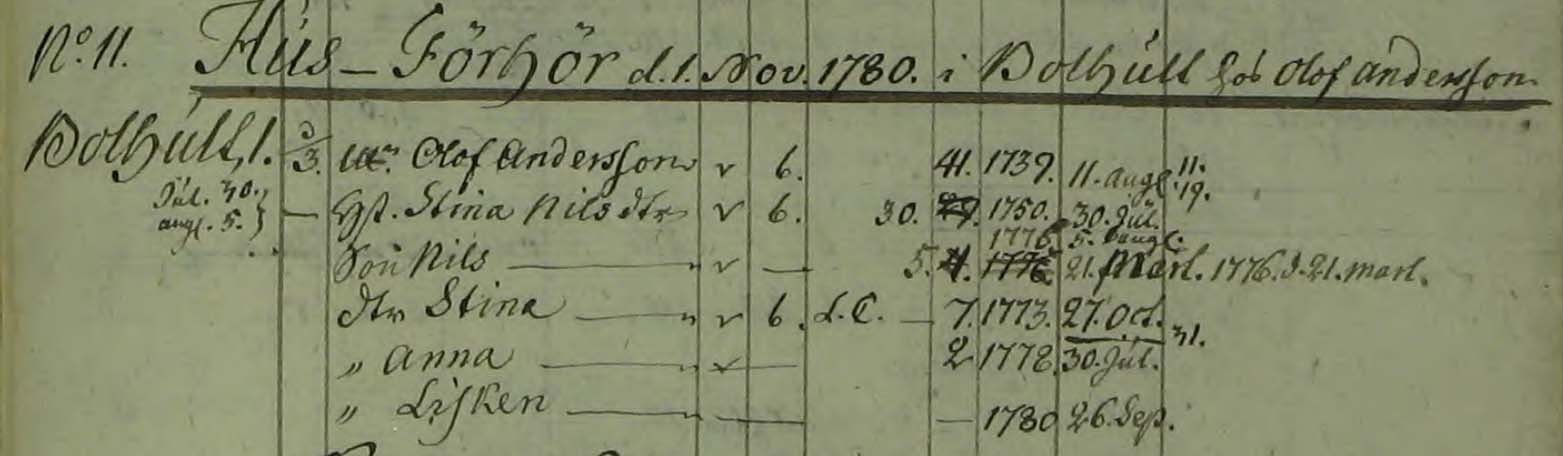 No. 11. Hús-Förhör d. 1. Nov. 1780. i Bolhúlt hos Olof andersson
Bolhúlt, 1. 3/3. Olof Andersson v 6. 41. 1739. 11. aug. 11. 19.
Júl. 30. augs. 5. — Hst. Stina Nilsdtr v 6. 30. 29. 1750. 30. Júl.
1776. 5.
Son Nils — v — 5. 4. 1776. 21. Mart. 1776. d. 21. mart.
dtr Stina — v 6. L. C. — 7. 1773. 27. Oct. 31.
" Anna — v — 2 1778. 30. Júl.
" Lisken — — — 1780 26. Sep.